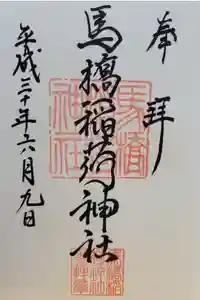 奉拝
馬橋稲荷神社
平成三十年六月九日
馬橋
神社